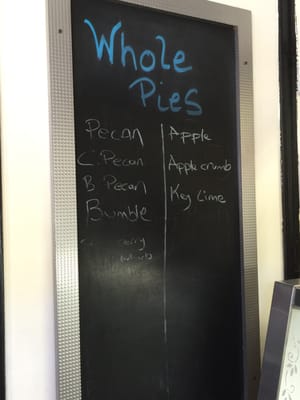 Whole
Pies
Pecan
C. Pecan
B Pecan
Bumble
Apple
Apple crumb
Key Lime